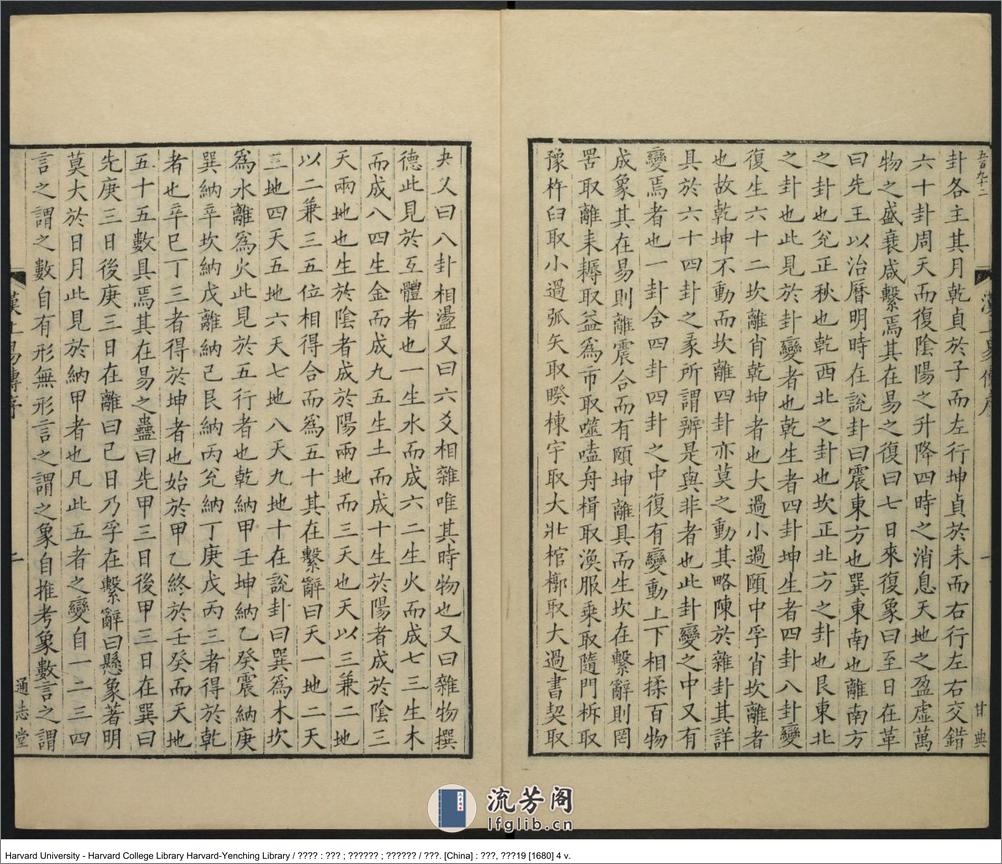 卦各主其月乾貞於子而左行坤貞於未而右行左右交錯
六十卦周天而復陰陽之升降四時之消息天地之盈虛萬
物之盛衰咸繫焉其在易之復曰七日來復象曰至日在革
曰先王以治曆明時在說卦曰震東方也巽東南也離南方
之卦也兊正秋也乾西北之卦也坎正北方之卦也艮東北
之卦也此見於卦變者也乾生者四卦坤生者四卦八卦變
復生六十二坎離肖乾坤者也大過小過頤中孚肖坎離者
也故乾坤不動而坎離四卦亦莫之動其略陳於雜卦其詳
具於六十四卦之彖所謂辨是與非者也此卦變之中又有
變焉者也一卦含四卦四卦之中復有變動上下相揉百物
成象其在易則離震合而有頤坤離具而生坎在繫辭則罔
罟取離耒耨取益爲市取噬嗑舟楫取渙服乘取隨門柝取
豫杵臼取小過弧矢取睽棟宇取大壯棺槨取大過書契取
甘典
夬又曰八卦相盪又曰六爻相雜唯其時物也又曰雜物撰
德此見於互體者也一生水而成六二生火而成七三生木
而成八四生金而成九五生土而成十生於陽者成於陰三
天兩地也生於陰者成於陽兩地而三天也天以三兼二地
以二兼三五位相得合而爲五十其在繫辭曰天一地二天
三地四天五地六天七地八天九地十在說卦曰巽爲木坎
爲水離爲火此見於五行者也乾納甲壬坤納乙癸震納庚
巽納辛坎納戊離納己艮納丙兊納丁庚戊丙三者得於乾
者也辛巳丁三者得於坤者也始於甲乙終於壬癸而天地
五十五數具焉其在易之蠱曰先甲三日後甲三日在巽曰
先庚三日後庚三日在離曰己日乃孚在繫辭曰懸象著明
莫大於日月此見於納甲者也凡此五者之變自一二三四
言之謂之數自有形無形言之謂之象自推考象數言之謂
漢上易傳序
二
通志堂
流芳阁
lfglib.cn
Harvard University - Harvard College Library Harvard-Yenching Library / ???? : ??? ; ?????? ; ?????? / ???. [China] : ???, ???19 [1680] 4 v.